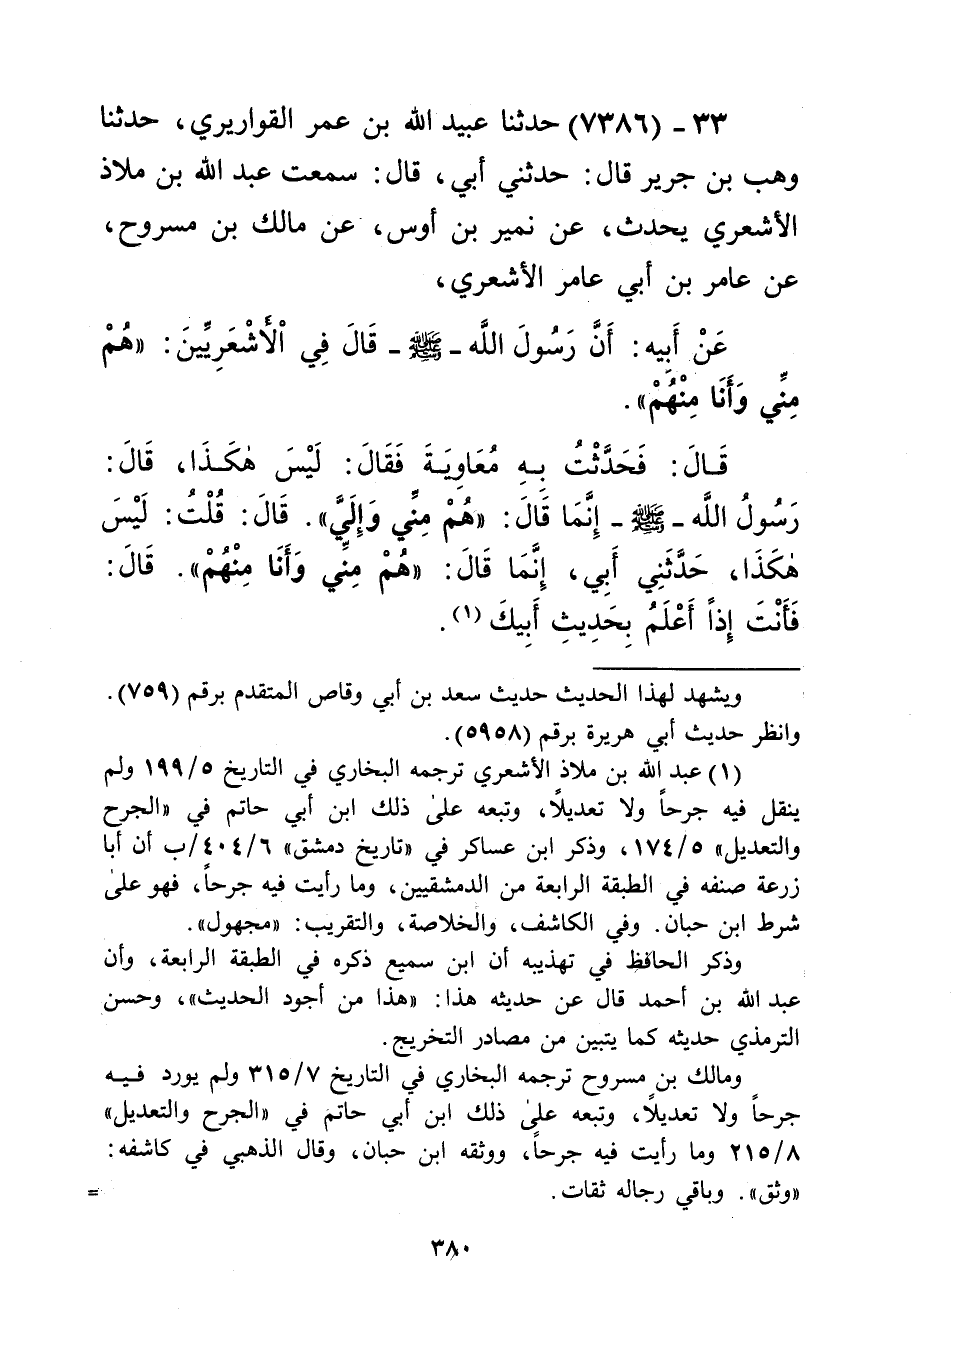 ٣٣ - (٧٣٨٦) حدثنا عبيد الله بن عمر القواريري، حدثنا
وهب بن جرير قال: حدثني أبي، قال: سمعت عبد الله بن ملاذ
الأشعري يحدث، عن نمير بن أوس، عن مالك بن مسروح،
عن عامر بن أبي عامر الأشعري،
عَنْ أَبِيهِ: أَنَّ رَسُولَ اللَّه - ﷺ - قَالَ فِي الْأَشْعَرِيِّينَ: «هُمْ
مِنِّي وَأَنَا مِنْهُمْ».
قَالَ: فَحَدَّثْتُ بِهِ مُعَاوِيَةَ فَقَالَ: لَيْسَ هٰكَذَا، قَالَ:
رَسُولُ اللَّه - ﷺ - إِنَّمَا قَالَ: «هُمْ مِنِّي وَإِلَيَّ». قَالَ: قُلْتُ: لَيْسَ
هٰكَذَا، حَدَّثَنِي أَبِي، إِنَّمَا قَالَ: «هُمْ مِنِّي وَأَنَا مِنْهُمْ». قَالَ:
فَأَنْتَ إِذاً أَعْلَمُ بِحَدِيثِ أَبِيكَ (١).
ويشهد لهذا الحديث حديث سعد بن أبي وقاص المتقدم برقم (٧٥٩).
وانظر حديث أبي هريرة برقم (٥٩٥٨).
(١) عبد الله بن ملاذ الأشعري ترجمه البخاري في التاريخ ١٩٩/٥ ولم
ينقل فيه جرحاً ولا تعديلاً، وتبعه علىٰ ذلك ابن أبي حاتم في «الجرح
والتعديل» ١٧٤/٥، وذكر ابن عساكر في «تاريخ دمشق» ٤٠٤/٦/ب أن أبا
زرعة صنفه في الطبقة الرابعة من الدمشقيين، وما رأيت فيه جرحاً، فهو علىٰ
شرط ابن حبان. وفي الكاشف، والخلاصة، والتقريب: «مجهول».
وذكر الحافظ في تهذيبه أن ابن سميع ذكره في الطبقة الرابعة، وأن
عبد الله بن أحمد قال عن حديثه هذا: «هذا من أجود الحديث»، وحسن
الترمذي حديثه كما يتبين من مصادر التخريج.
ومالك بن مسروح ترجمه البخاري في التاريخ ٣١٥/٧ ولم يورد فيه
جرحاً ولا تعديلاً، وتبعه علىٰ ذلك ابن أبي حاتم في «الجرح والتعديل»
٢١٥/٨ وما رأيت فيه جرحاً، ووثقه ابن حبان، وقال الذهبي في كاشفه:
«وثق». وباقي رجاله ثقات. =
٣٨٠